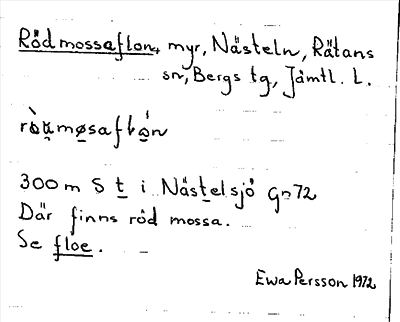 Rödmossaflon, myr, Nästeln, Rätans
sn, Bergs tg, Jämtl. L.
300 m S t i Nästelsjö Gn 72
Där finns röd mossa.
Se floe.
Ewa Persson 1972